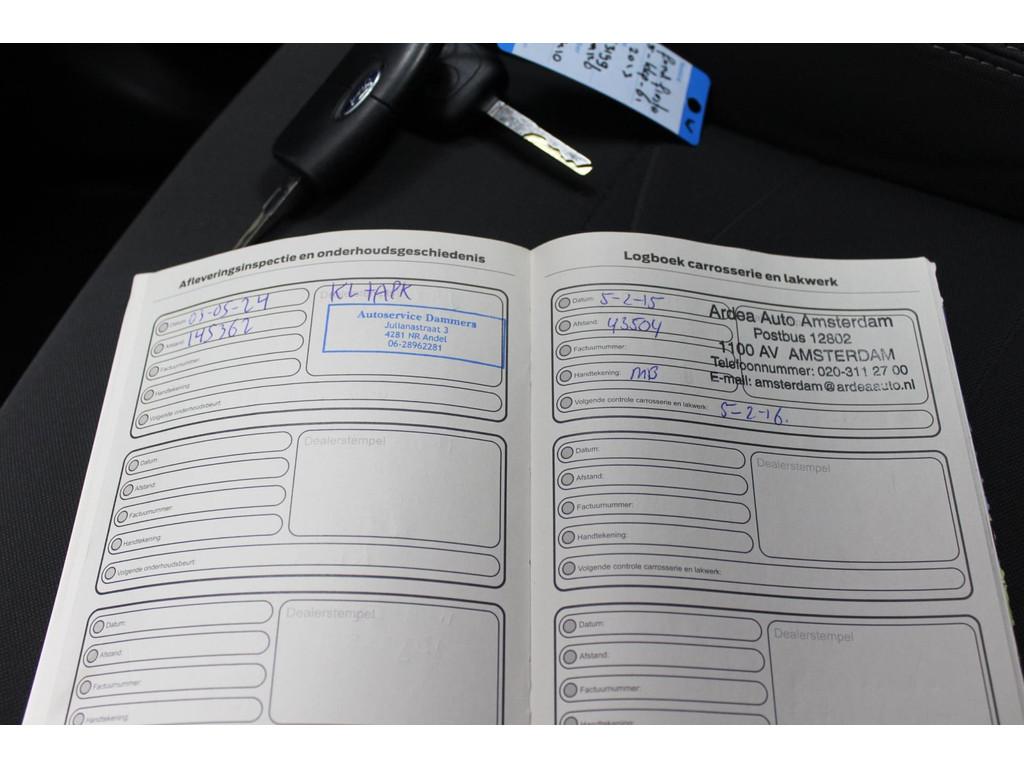 Ford
Ford Fiesta
2013
Afleveringsinspectie en onderhoudsgeschiedenis
Datum: 03-05-24
Afstand: 145362
Factuurnummer:
Handtekening:
Volgende onderhoudsbeurt:
KL+APK
Autoservice Dammers
Julianastraat 3
4281 NR Andel
06-28962281
Datum:
Afstand:
Factuurnummer:
Handtekening:
Volgende onderhoudsbeurt:
Dealerstempel
Datum:
Afstand:
Factuurnummer:
Handtekening:
Dealerstempel
Logboek carrosserie en lakwerk
Datum: 5-2-15
Afstand: 43504
Factuurnummer:
Handtekening: MB
Volgende controle carrosserie en lakwerk: 5-2-16.
Ardea Auto Amsterdam
Postbus 12802
1100 AV AMSTERDAM
Telefoonnummer: 020-311 27 00
E-mail: amsterdam@ardeaauto.nl
Datum:
Afstand:
Factuurnummer:
Handtekening:
Volgende controle carrosserie en lakwerk:
Dealerstempel
Datum:
Afstand:
Factuurnummer:
Handtekening:
Dealerstempel